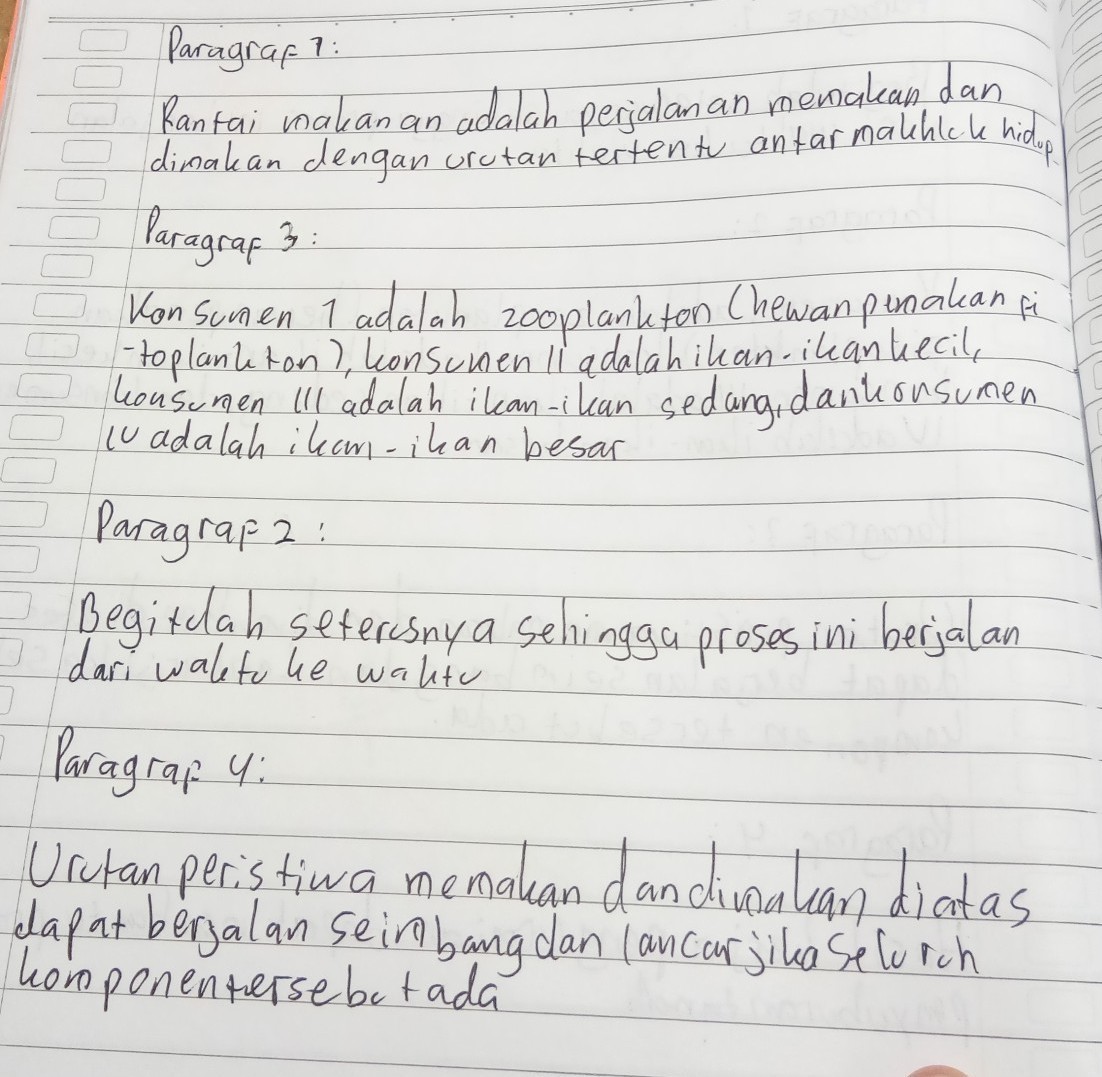 Paragraf 1:
Rantai makanan adalah perjalanan memakan dan
dimakan dengan urutan tertentu antar makhluk hidup
Paragraf 3:
Konsumen 1 adalah zooplankton (hewan pemakan fi
-toplankton), konsumen II adalah ikan-ikan kecil,
konsumen III adalah ikan-ikan sedang, dan konsumen
IV adalah ikan-ikan besar
Paragraf 2:
Begitulah seterusnya sehingga proses ini berjalan
dari waktu ke waktu
Paragraf 4:
Urutan peristiwa memakan dan dimakan diatas
dapat berjalan seimbang dan lancar jika seluruh
komponen tersebut ada